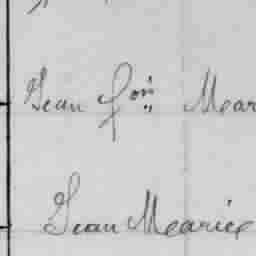 Jean fois Mear
Jean Mearie